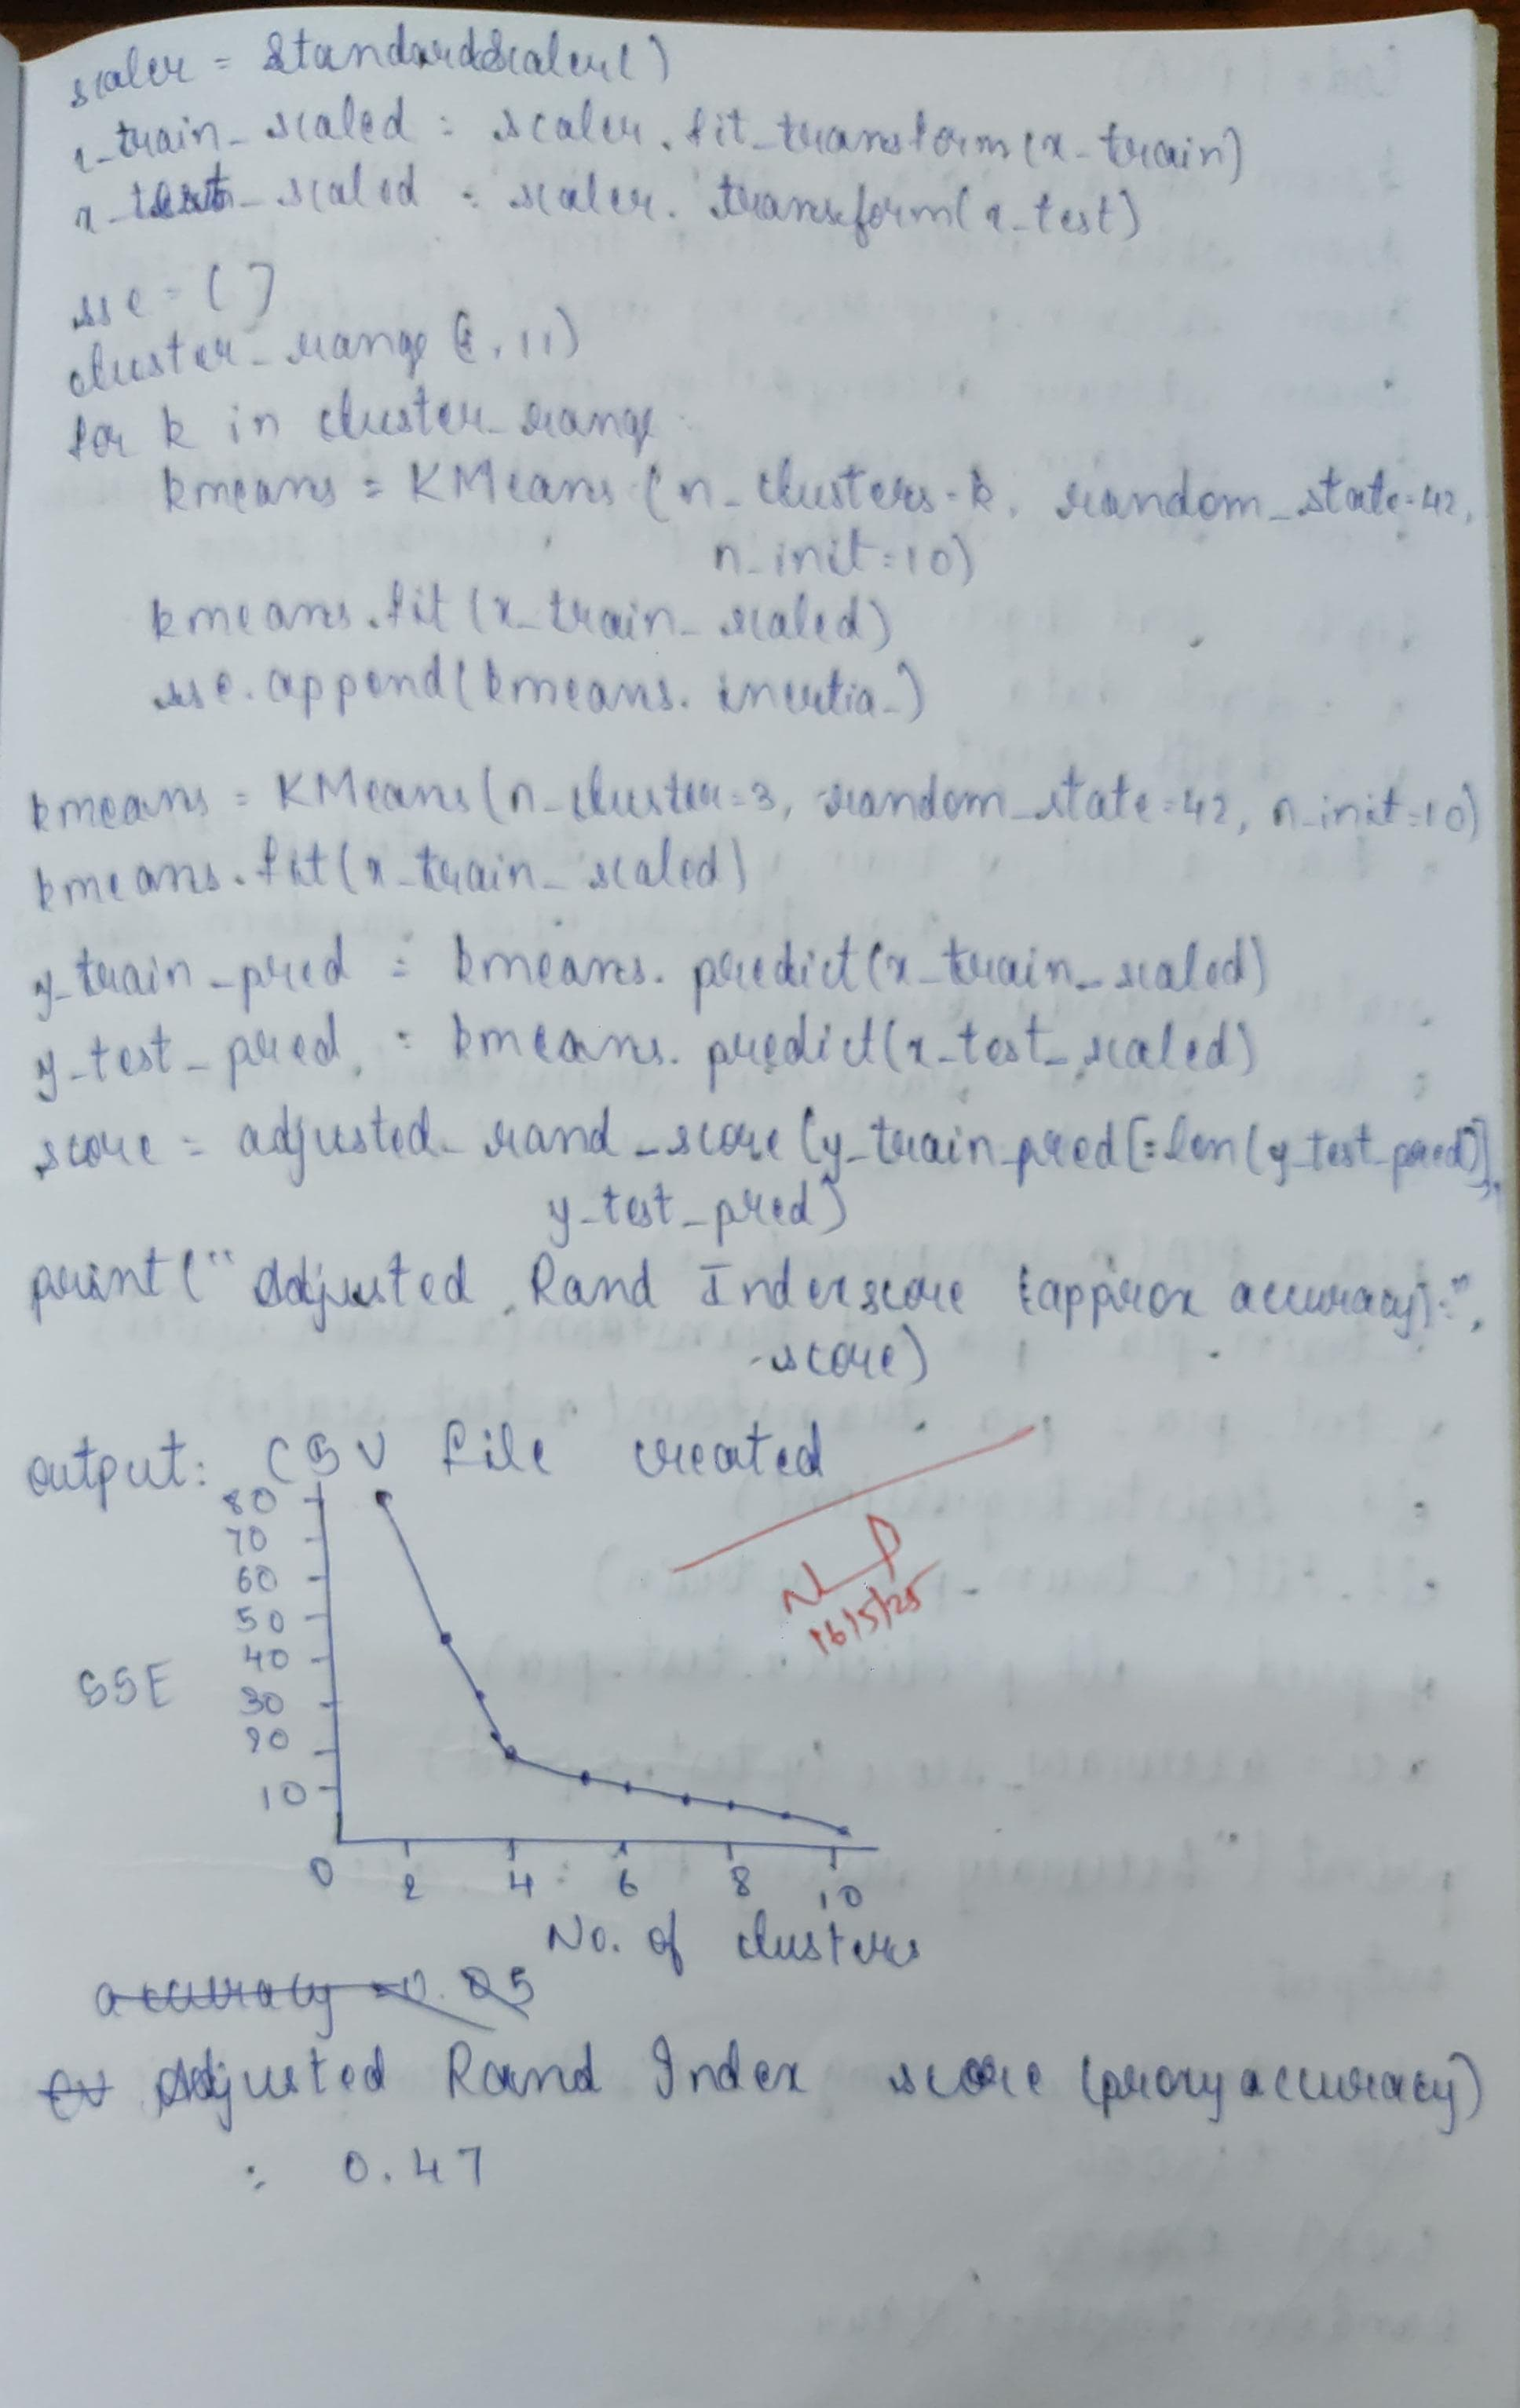 scaler = StandardScaler()
x_train_scaled = scaler.fit_transform(x_train)
x_test_scaled = scaler.transform(x_test)
sse = []
cluster_range (1, 11)
for k in cluster_range:
kmeans = KMeans (n_clusters=k, random_state=42,
n_init=10)
kmeans.fit(x_train_scaled)
sse.append(kmeans.inertia_)
kmeans = KMeans(n_cluster=3, random_state=42, n_init=10)
kmeans.fit(x_train_scaled)
y_train_pred = kmeans.predict(x_train_scaled)
y_test_pred = kmeans.predict(x_test_scaled)
score = adjusted_rand_score(y_train_pred[:len(y_test_pred)],
y_test_pred)
print("Adjusted Rand Index score (approx accuracy):",
score)
output: CSV file created
80
70
60
50
40
30
20
10
SSE
0 2 4 6 8 10
No. of clusters
accuracy = 0.85
Adjusted Rand Index score (proxy accuracy)
: 0.47
16/5/25